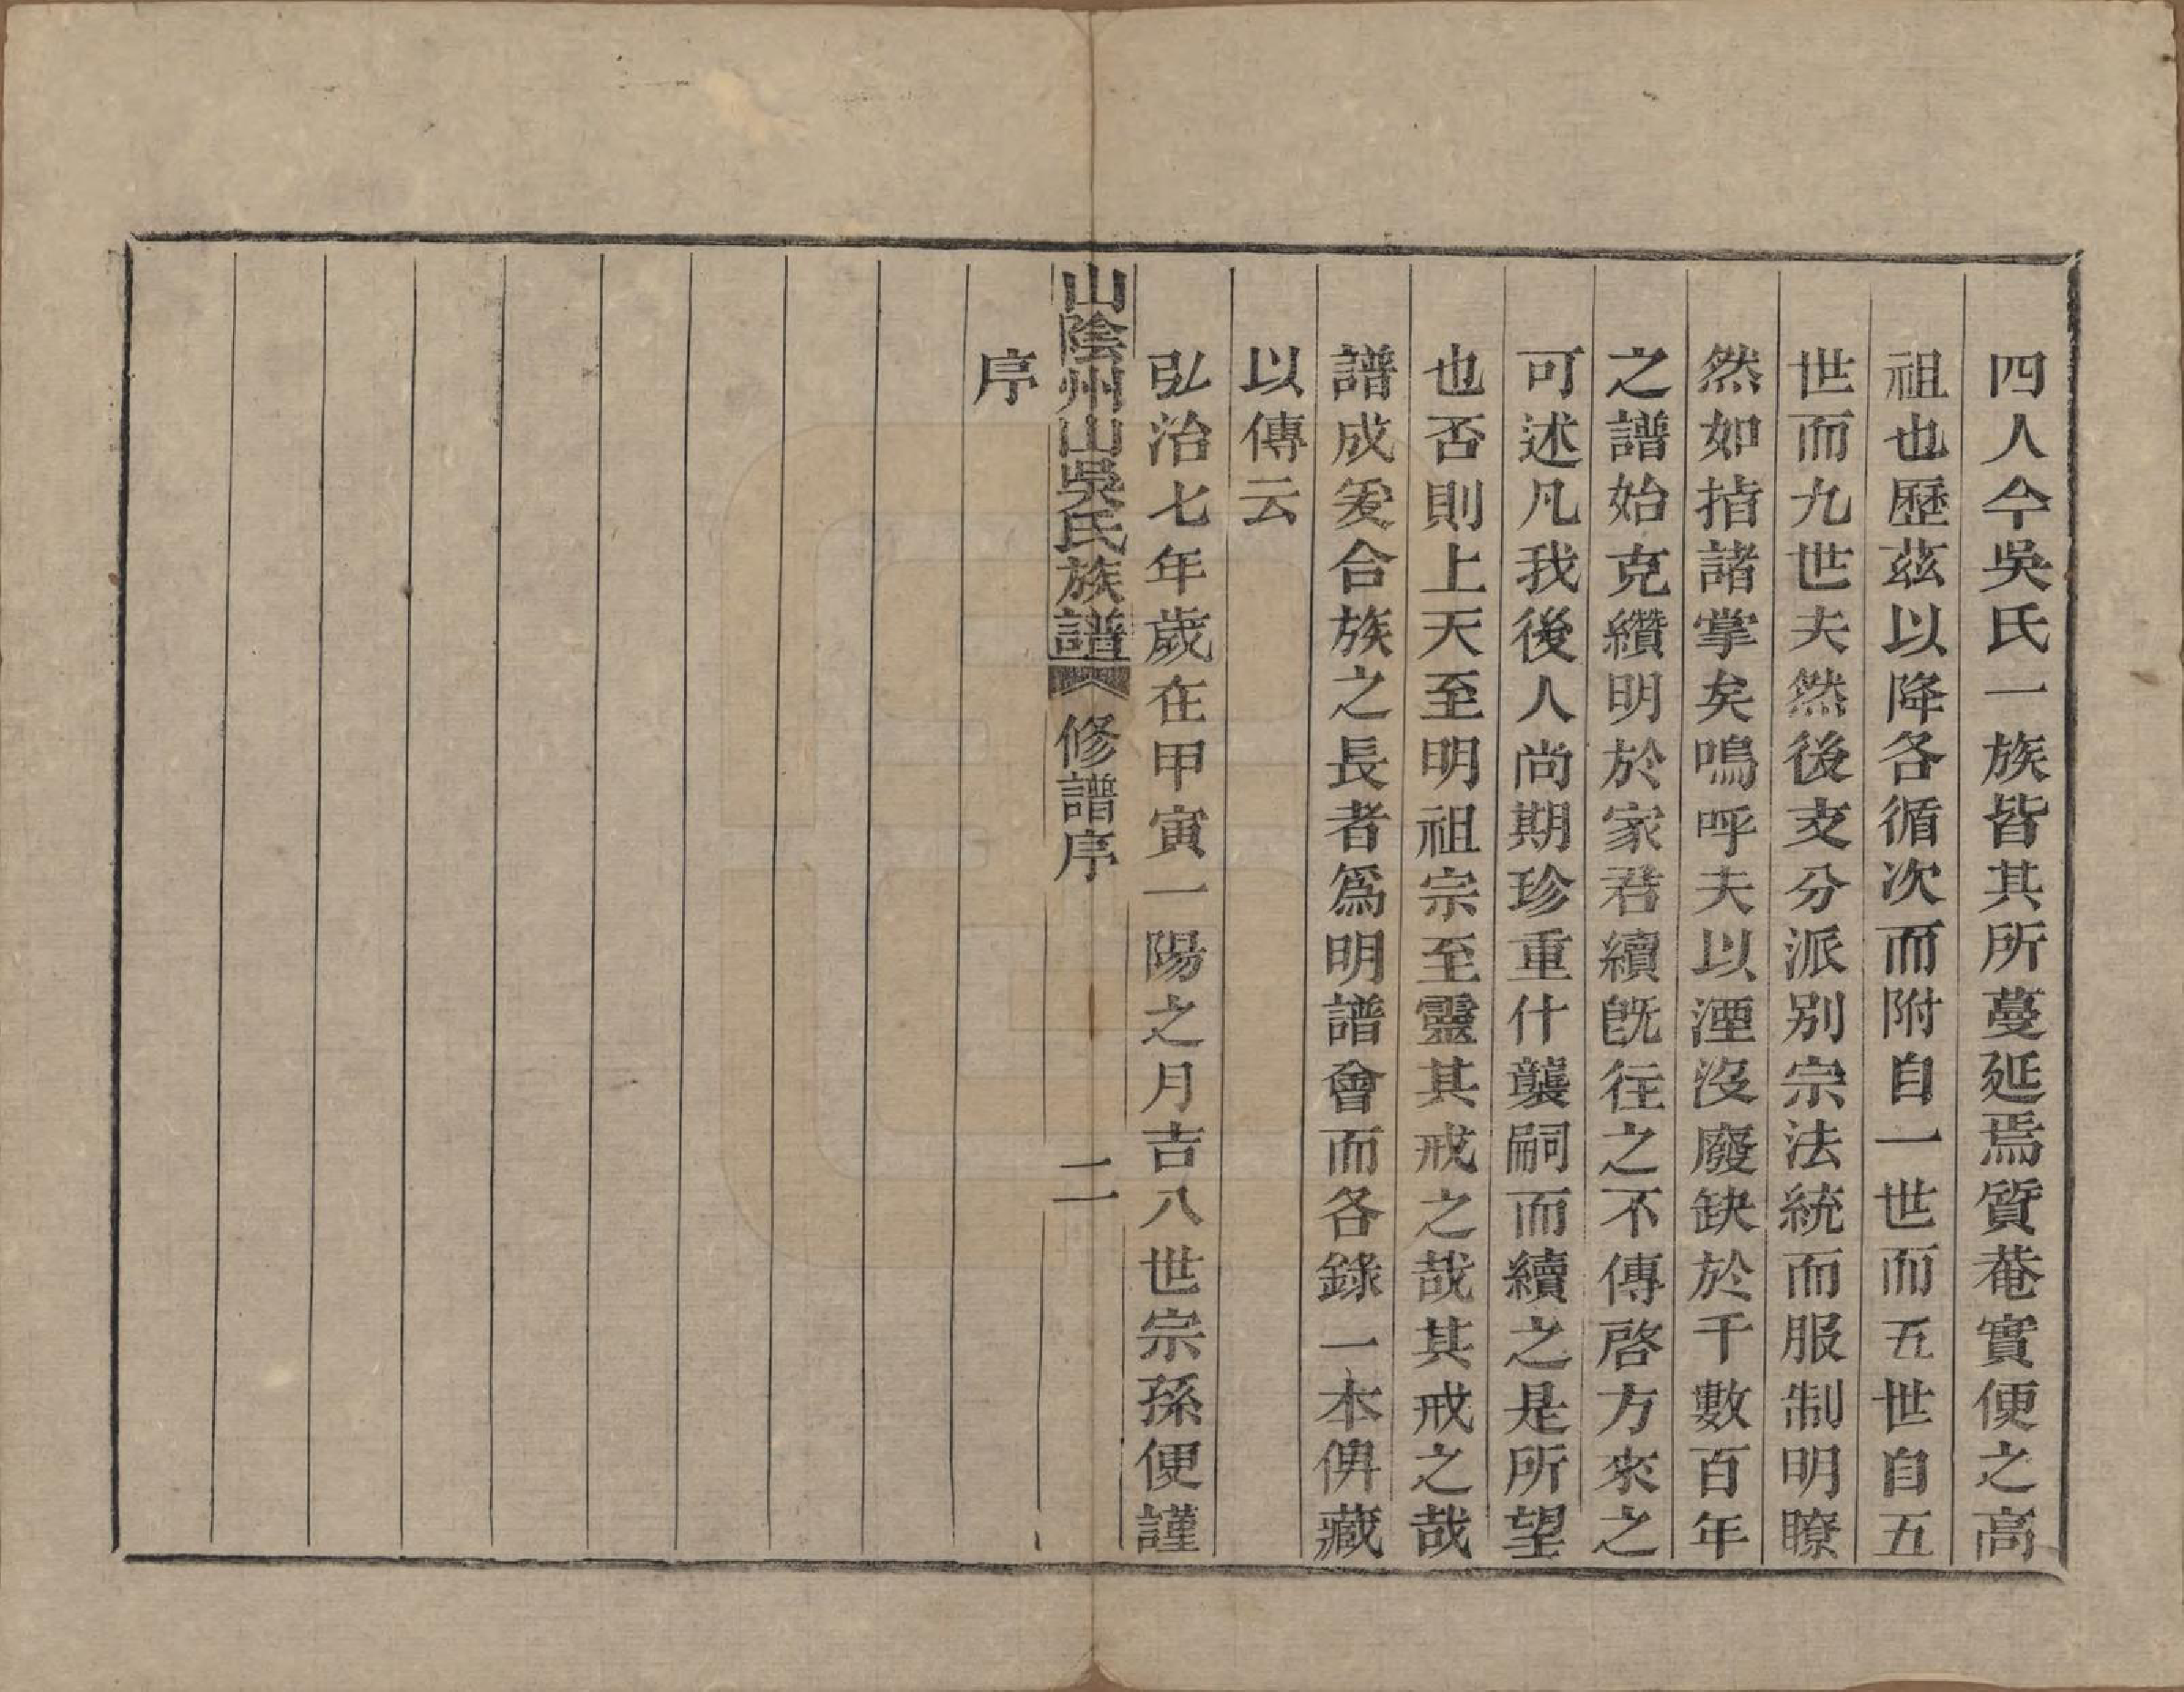 四人今吳氏一族皆其所蔓延焉質菴實便之高
祖也歷茲以降各循次而附自一世而五世自五
世而九世夫然後支分派別宗法統而服制明瞭
然如指諸掌矣嗚呼夫以湮沒廢缺於千數百年
之譜始克纘明於家君續旣往之不傳啓方來之
可述凡我後人尚期珍重什襲嗣而續之是所望
也否則上天至明祖宗至靈其戒之哉其戒之哉
譜成爰合族之長者爲明譜會而各錄一本俾藏
以傳云
弘治七年歲在甲寅一陽之月吉八世宗孫便謹
山陰州山吳氏族譜 修譜序 二
序